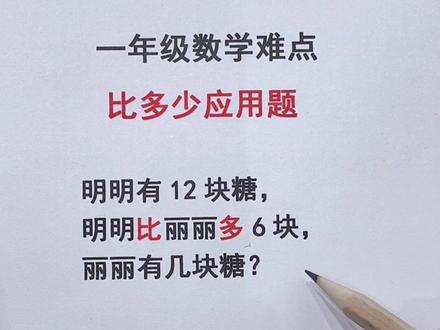 一年级数学难点
比多少应用题
明明有 12 块糖，
明明比丽丽多 6 块，
丽丽有几块糖？